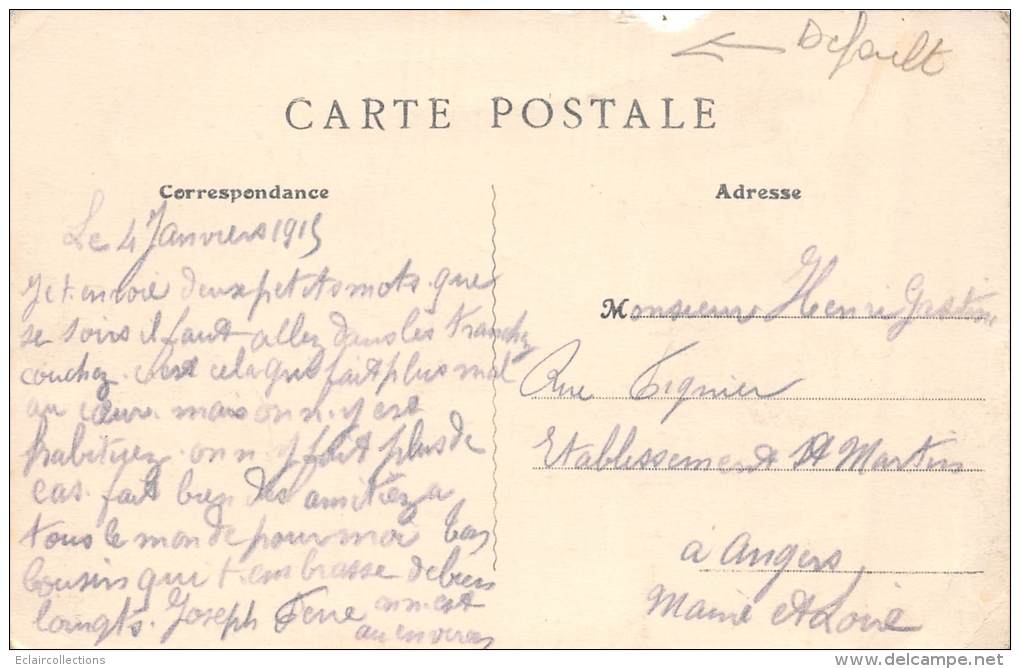 Default
CARTE POSTALE
Correspondance
Adresse
Le 4 Janviers 1915
Je t.envoie deux petits mots. que
se soirs il faut allez dans les tranchez
couchez. c'est cela qui fait plus mal
au cœur. mais on n.y est
habituez. on n.y fait plus de
cas. fait bien des amitiez a
tous le monde pour moi ton
cousin qui t.embrasse de bien
loingts. Joseph
on n.est
au environ
Monsieur Henri Gastine
Rue Tignier
Etablissement St Martin
à Angers
Maine et Loire
Eclaircollections
http://eclaircollections.delcampe.net